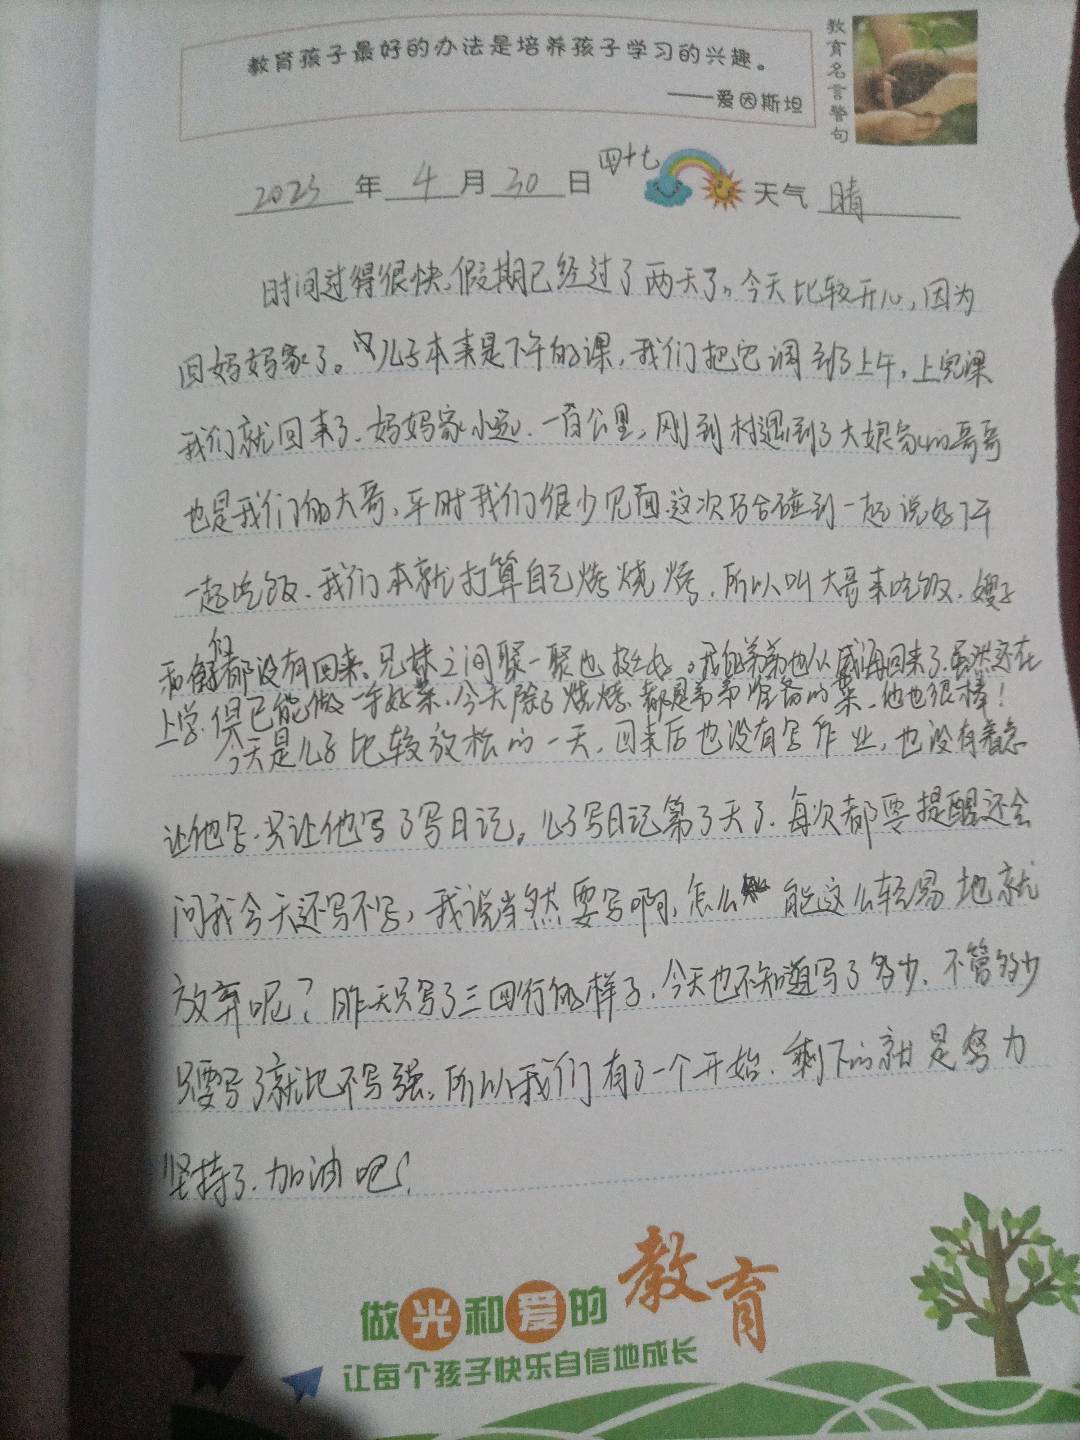 教育孩子最好的办法是培养孩子学习的兴趣。
——爱因斯坦
教育名言警句
2023年4月30日 四十七 天气 晴
时间过得很快,假期已经过了两天了。今天比较开心,因为
回妈妈家了。儿子本来是下午的课,我们把它调到了上午,上完课
我们就回来了.妈妈家小远.一百公里,刚到村遇到了大娘家的哥哥
也是我们的大哥,平时我们很少见面这次巧合碰到一起说好下午
一起吃饭.我们本就打算自己烤烧烤.所以叫大哥来吃饭.嫂子
和侄都没有回来.兄妹之间聚一聚也挺好。我的弟弟也从威海回来了.虽然还在
上学.但已能做一手好菜.今天除了烧烤都是弟弟准备的菜.他也很棒!
今天是儿子比较放松的一天.回来后也没有写作业,也没有着急
让他写.只让他写了写日记。儿子写日记第3天了.每次都要提醒还会
问我今天还写不写,我说当然要写啊,怎么能这么轻易地就
放弃呢?昨天只写了三四行的样子.今天也不知道写了多少.不管多少
只要写了就比不写强.所以我们有了一个开始.剩下的就是努力
坚持了.加油吧!
做光和爱的教育
让每个孩子快乐自信地成长